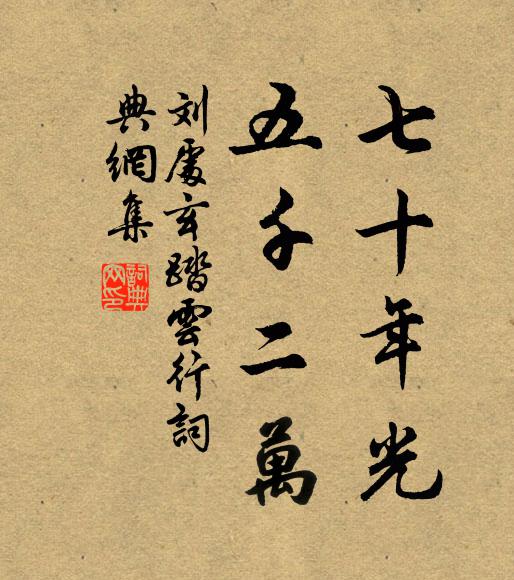 七十年光
五千二萬
刘處玄踏雲行詞
典網集
詞典網印